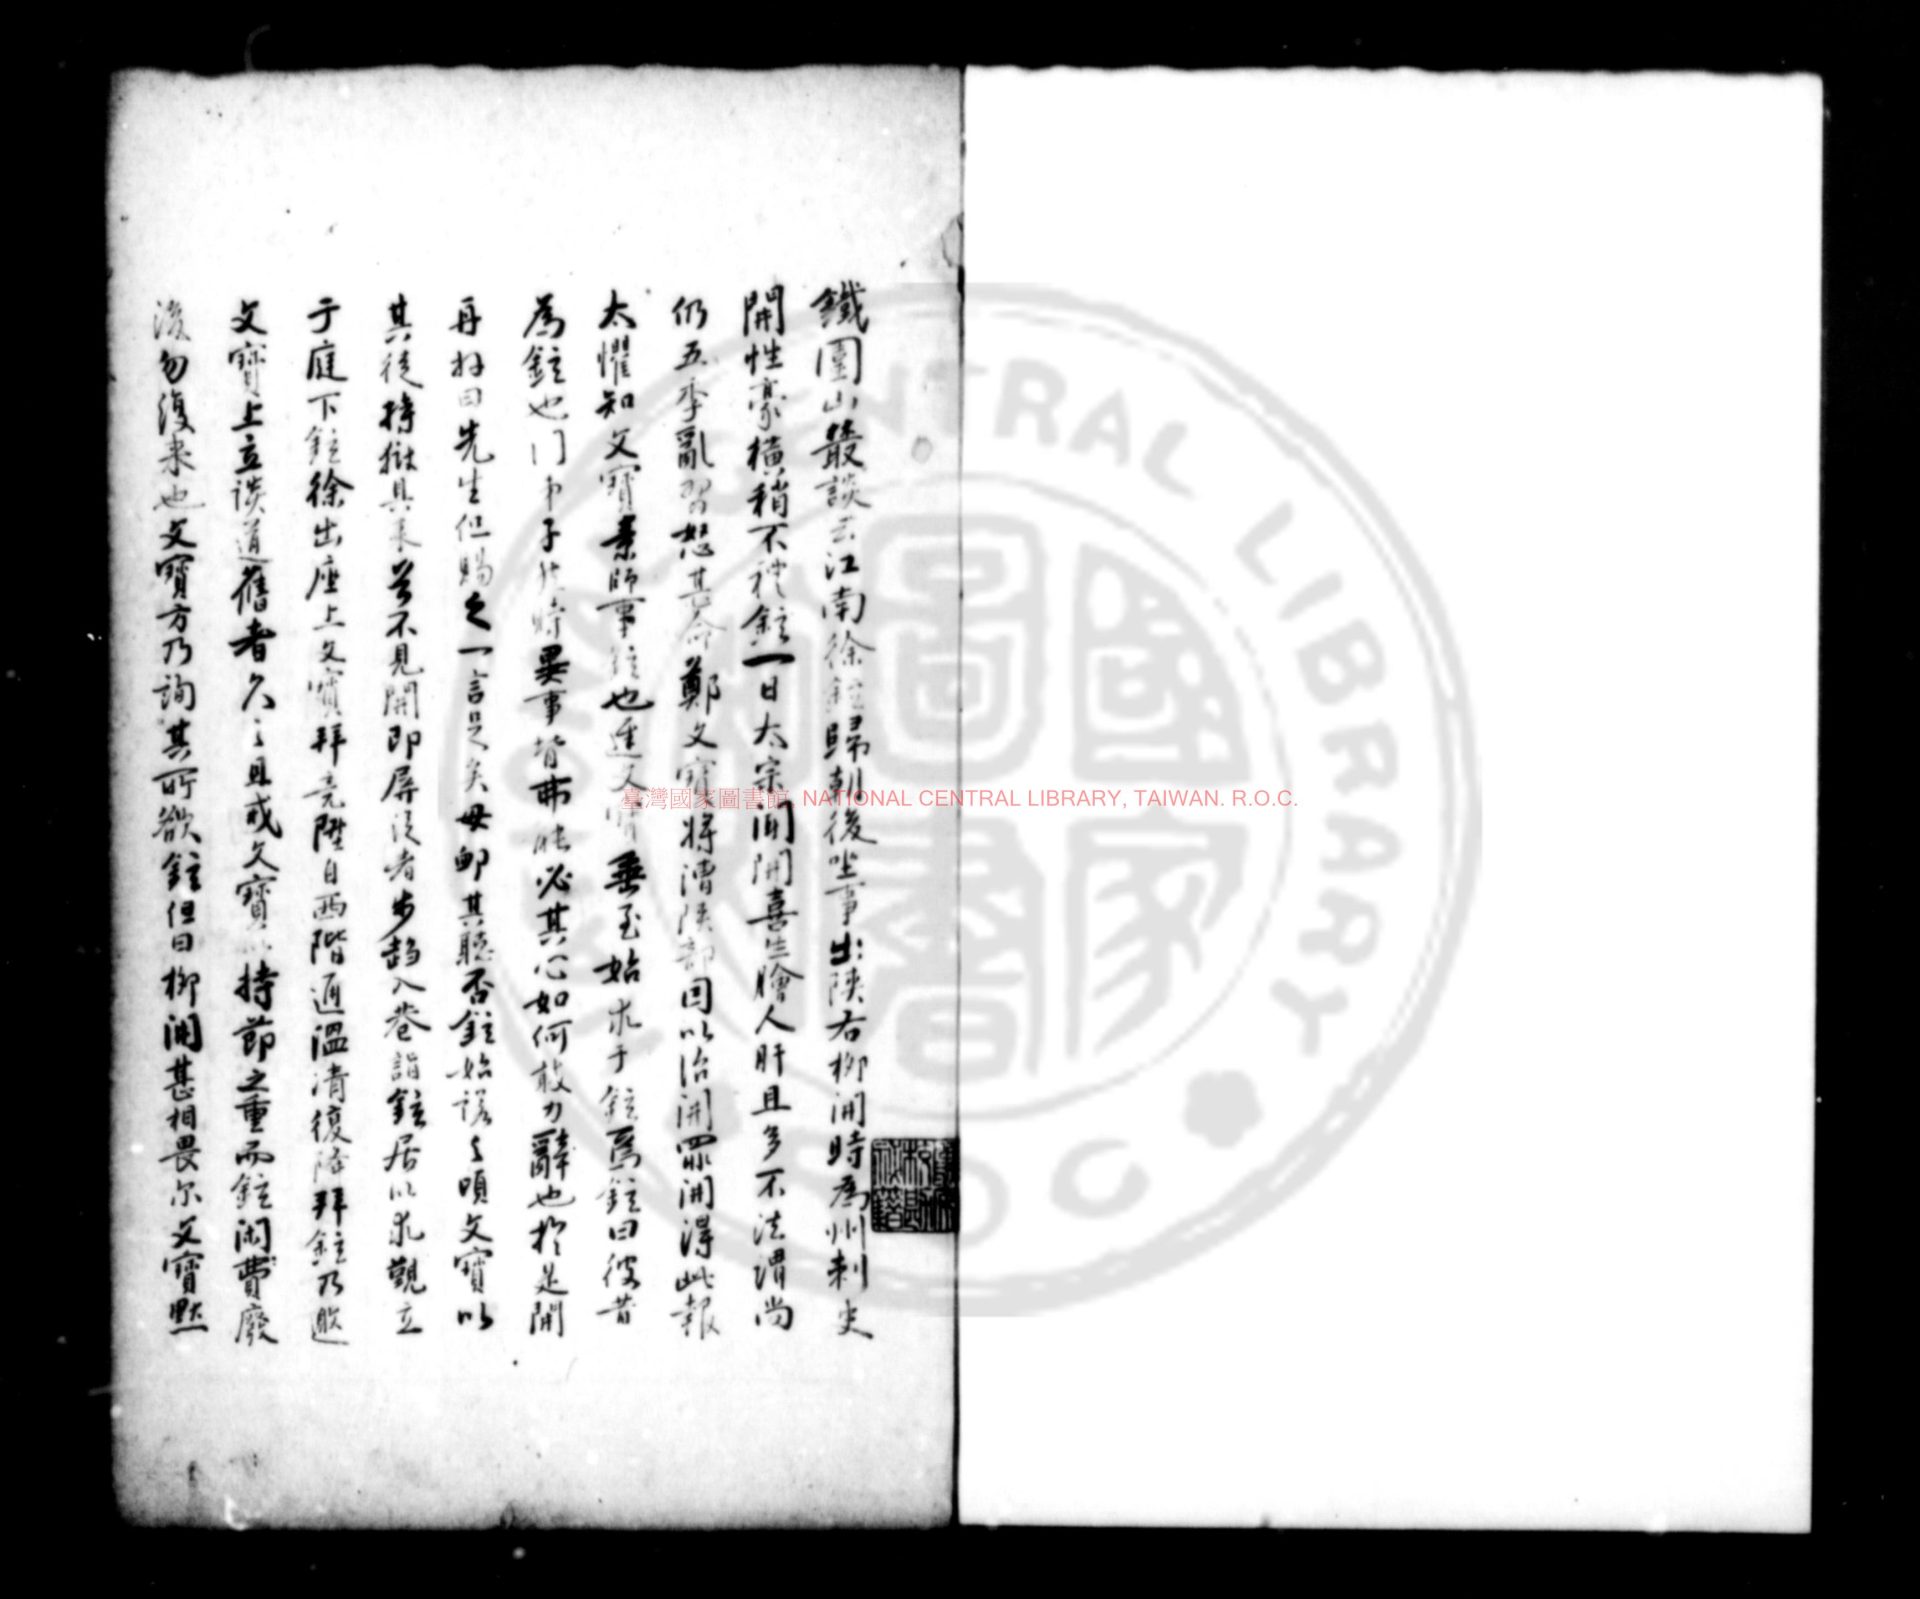 鐵圍山叢談云江南徐鉉歸朝後坐事出陝右柳開時為州刺史
開性豪橫稍不禮鉉一日太宗聞開喜生膾人肝且多不法謂尚
仍五季亂習怒甚命鄭文寶將漕陝部因以治開罪開得此報
大懼知文寶素師事鉉也逮文寶垂至始求于鉉焉鉉曰彼昔
為鉉也門弟子然時異事背弗能必其心如何敢力辭也於是開
再拜曰先生但賜之一言足矣毋卹其聽否鉉始諾之頃文寶以
其徒持獄具來首不見開即屏從者步趨入巷詣鉉居以求覲立
于庭下鉉徐出座上文寶拜竟陞自西階通溫凊復降拜鉉乃邀
文寶上立談道舊者久之且戒文寶以持節之重而鉉閑費廢
後勿復來也文寶方乃詢其所欲鉉但曰柳開甚相畏尔文寶默
臺灣國家圖書館 NATIONAL CENTRAL LIBRARY, TAIWAN. R.O.C.